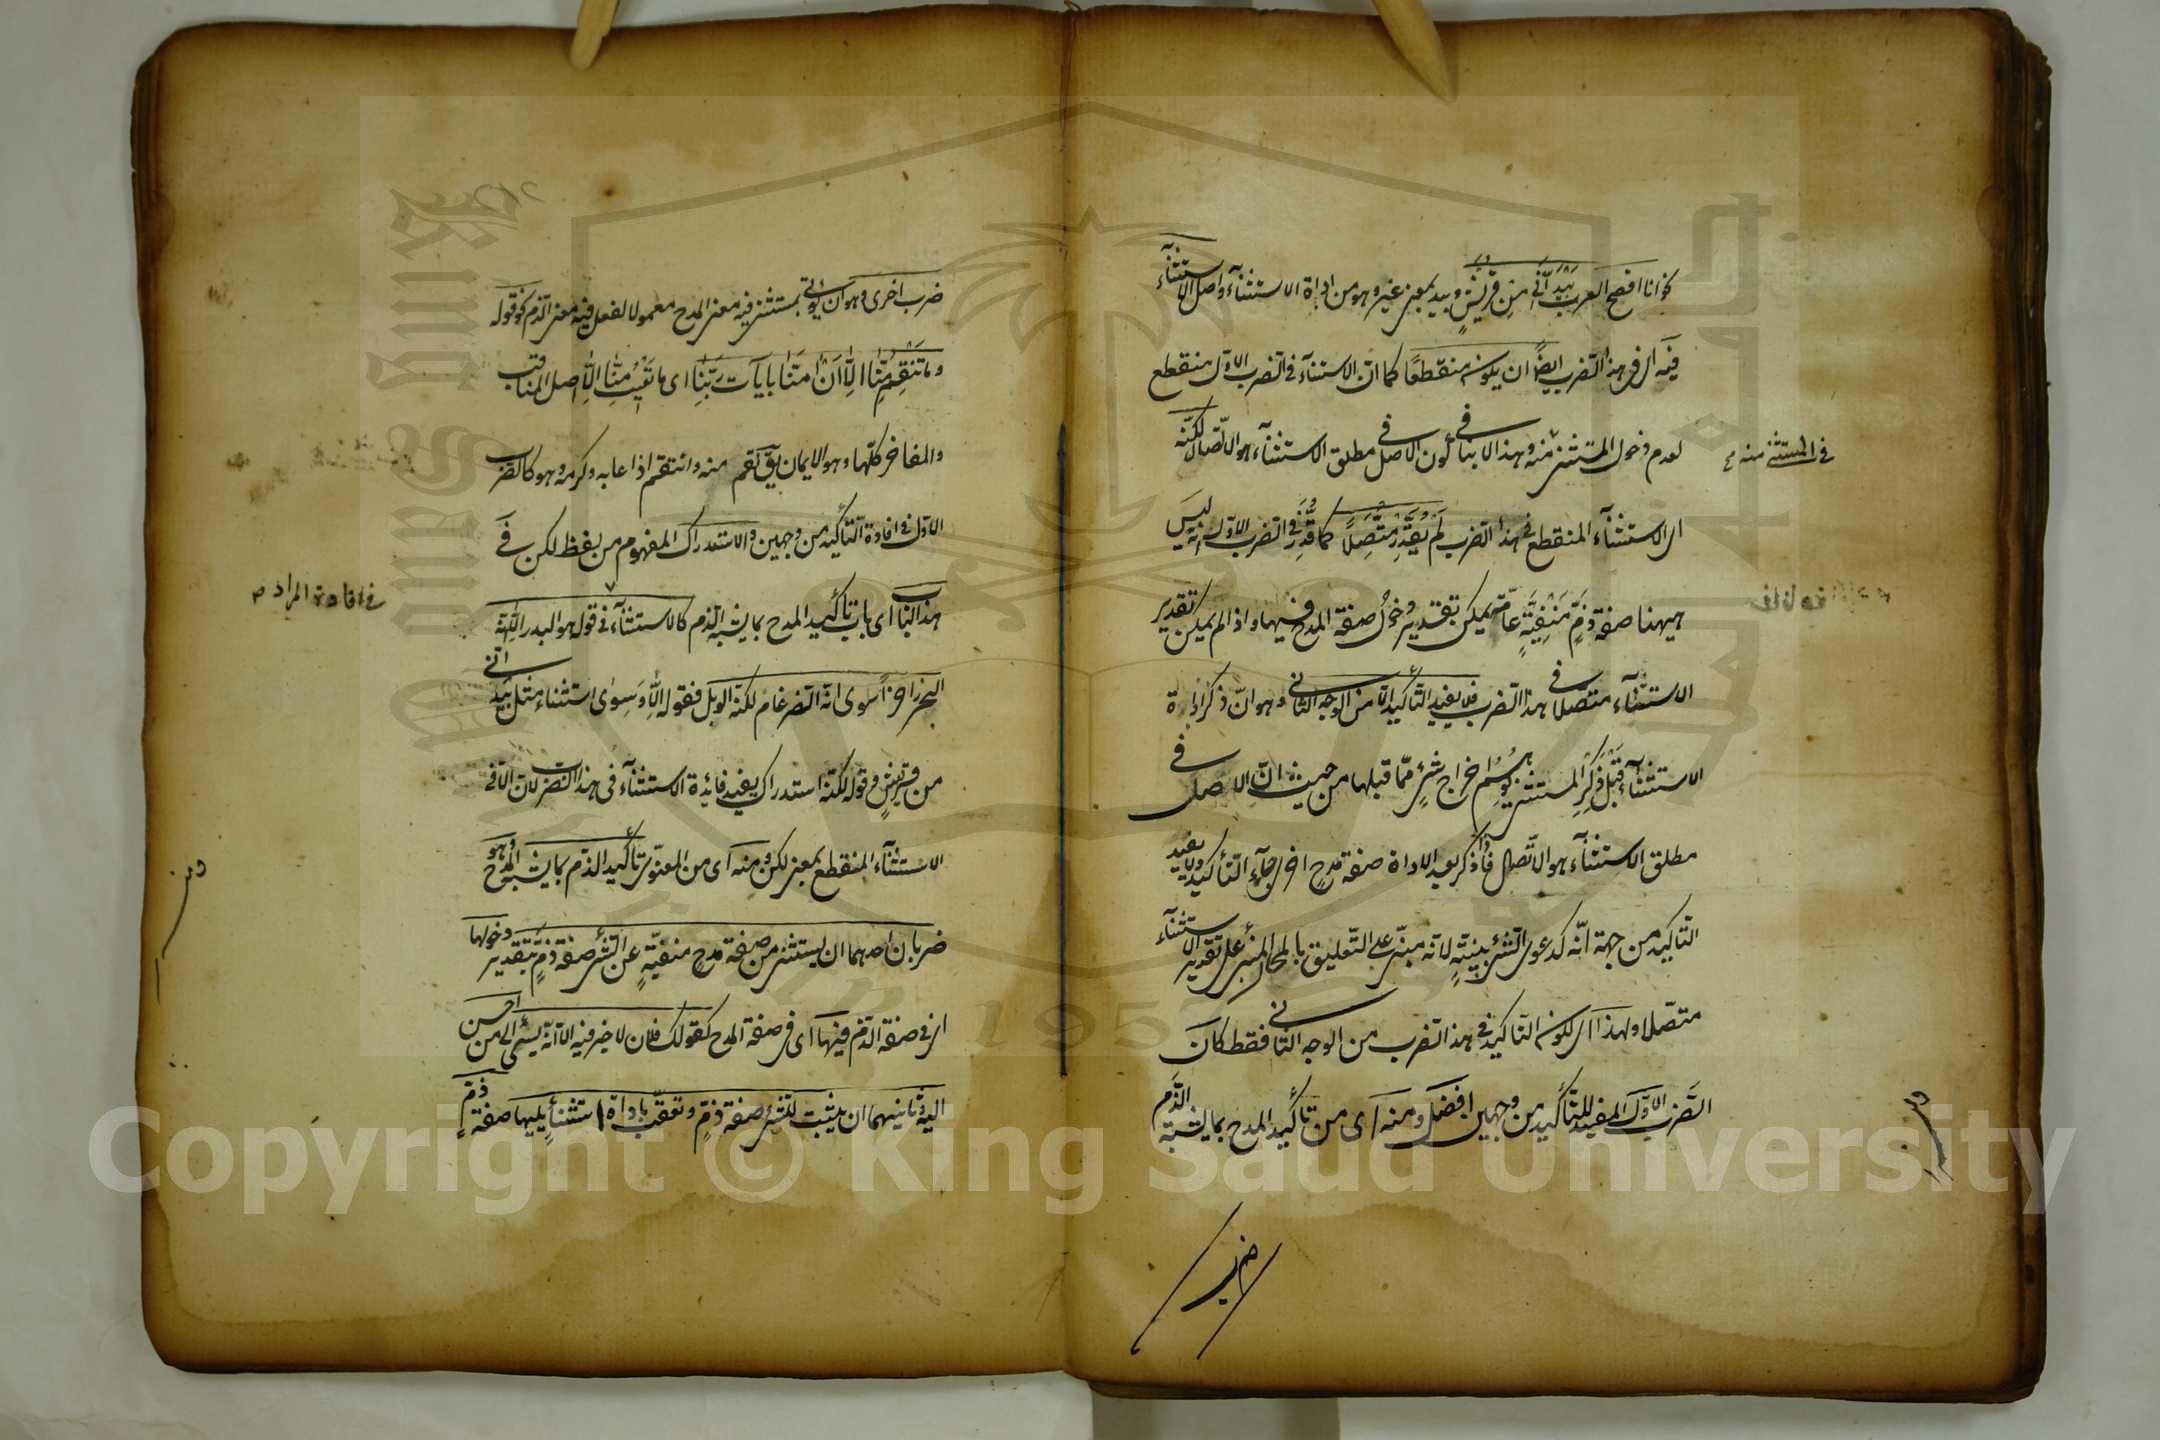 نحو انا افصح العرب بَيْدَ أَنّي من قريشٍ وبيد بمعنى غير وهو من اداة الاستثناء واصل الاستثناء
فيه اى فى هذا الضرب ايضاً ان يكون منقطعًا كما انّ الاستثناء فى الضرب الاول منقطع
لعدم دخول المستثنى منه وهذا لا ينافى كون الاصل فى مطلق الاستثناء هو الاتّصال لكنّه
فى المستثنى منه
اى الاستثناء المنقطع فى هذا الضرب لَمْ يُقَدَّرْ متّصِلًا كما قُدِّرَ فى الضرب الاول اذ ليسَ
هيهنا صفة ذمٍّ مَنْفِيَّةٍ عامّة يمكن تقدير دخول صفة المدح فيها واذا لم يمكن تقدير
الاستثناء متصّلا فى هذا الضرب فلا يفيد التأكيد الّا من الوجه الثانى وهو انّ ذكر اداة
الاستثناء قَبْلَ ذِكْرِ المستثنى يُوهِمُ اخراج شئٍ ممّا قبلها من حيث انّ الاصل فى
مطلق الاستثناء هو الاتّصال فاذا ذكر بعد الاداة صفة مدحٍ اخرى جاء التأكيد ولا يفيد
التأكيد من جهة انّه كدعوى الشئ ببيّنةٍ لانه مبنىّ على التعليق بالمحال المبنى على تقدير الاستثناء
متصّلا ولهذا اى لكون التأكيد فى هذا الضرب من الوجه الثانى فقط كان
الضَّرب الاوّل المفيد للتّأكيد من وجهين افضل ومنه اى من تأكيد المدح بما يشبه الذّم
ضرب
ضرب اخرى وهو ان يؤتى بمستثنى فيه معنى المدح معمولا لفعل فيه معنى الذم نحو قوله
وما تَنْقِمُ مِنّا الّا أنْ امَنّا بايآت رَبِّنا اى ما تعيب مِنّا الّا اصل المناقب
والمفاخر كلّها وهو الايمان يق نقم منه وانتقم اذا عابه وكرهه وهو كالضرب
الاوّل فى افادة التّأكيد من وجهين والاستدراك المفهوم من لفظ لكن فى
هذا الباب اى باب تأكيد المدح بما يشبه الذم كالاستثناء فى قوله هو البدر الّا انه
فى افادة المراد
البحر زاخراً سوى انّه الضرغام لكنّه الوبل فقوله الّا وَسِوى استثناء مثل بَيْدَ انّى
من قريشٍ وقوله لكنّه استدراك يفيد فائدة الاستثناء فى هذا الضرب لان الّا فى
الاستثناء المنقطع بمعنى لكن ومنه اى من المعنوى تأكيد الذّم بما يشبه المدح وهو
ضربان احدهما ان يستثنى من صفة مدحٍ منفيّةٍ عن الشئ صفة ذمٍّ بتقدير دخولها
اى فى صفة الذم فيها اى فى صفة المدح كقولك فلان لا خير فيه الّا انّه يسئ الى من احسن
اليه وثانيهما ان يثبت للشئ صفة ذمّ وتعقب باداة استثناءٍ يليها صفة ذمٍّ